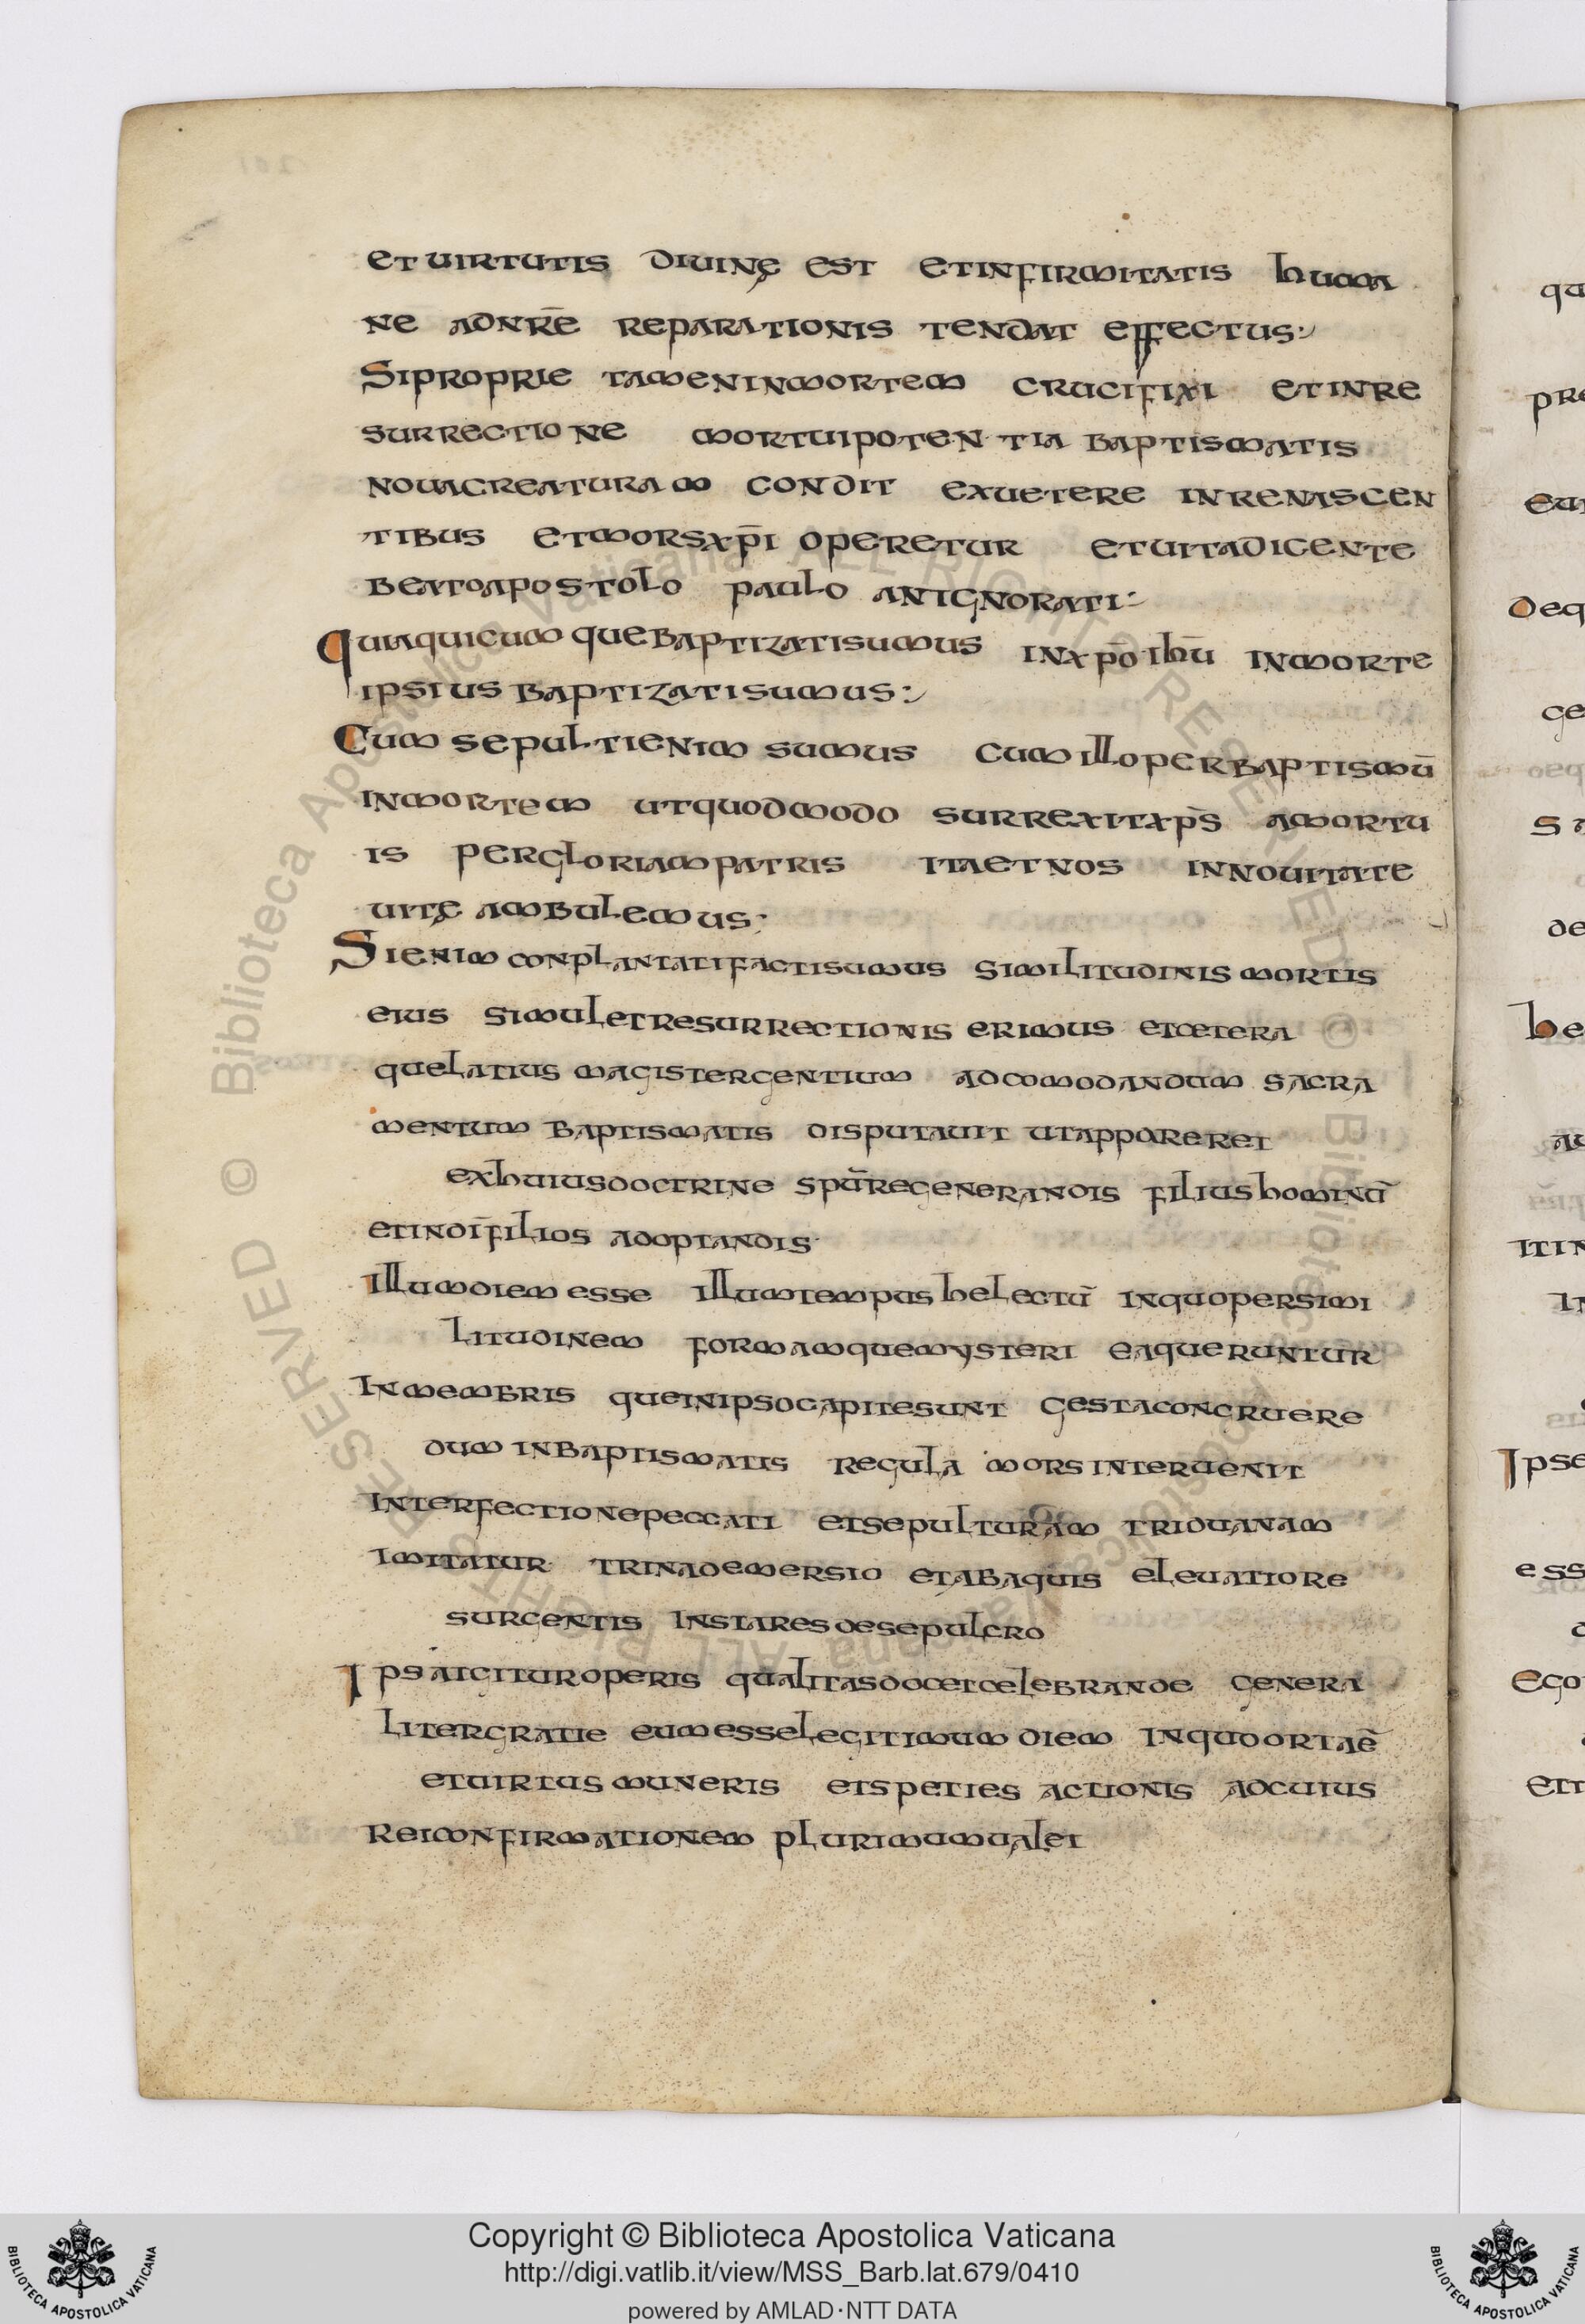 et uirtutis diuinę est et infirmitatis huma
ne ad nr̄e reparationis tendat effectus:
Si proprie tamen in mortem crucifixi et in re
surrectione mortui potentia baptismatis
noua creaturam condit ex uetere in renascen
tibus et mors xp̄i operetur et uita dicente
beato apostolo paulo an ignorati:
Quia quicumque baptizati sumus in xp̄o ihū in morte
ipsius baptizati sumus:
Cum sepulti enim sumus cum illo per baptismū
in mortem ut quod modo surrexit xp̄s a mortu
is per gloriam patris ita et nos in nouitate
uitę ambulemus;
Si enim conplantati facti sumus similitudinis mortis
eius simul et resurrectionis erimus et cetera
que latius magister gentium ad comodandum sacra
mentum baptismatis disputauit ut apparerei
ex huius doctrine spū regenerandis filius hominū
et in dī filios adoptandis
Illum diem esse illum tempus helectū in quo per simi
litudinem formamque mysteri ea queruntur
In membris que in ipso capite sunt gesta congruere
dum in baptismatis regula mors interuenit
interfectione peccati et sepulturam triduanam
imitatur trina demersio et ab aquis eleuatio re
surgentis instar es de sepulcro
Ipsa igitur operis qualitas docet celebrande genera
liter gratie eum esse legitimum diem in quo orta ē
et uirtus muneris et speties actionis ad cuius
rei confirmationem plurimum ualet
qu
pre
eui
deq
ge
de
he
au
itin
in
Ipse
ess
ego
Copyright © Biblioteca Apostolica Vaticana
http://digi.vatlib.it/view/MSS_Barb.lat.679/0410
powered by AMLAD·NTT DATA
BIBLIOTECA APOSTOLICA VATICANA
BIBLIOTECA APOSTOLICA VATICANA
© Biblioteca Apostolica Vaticana ALL RIGHTS RESERVED